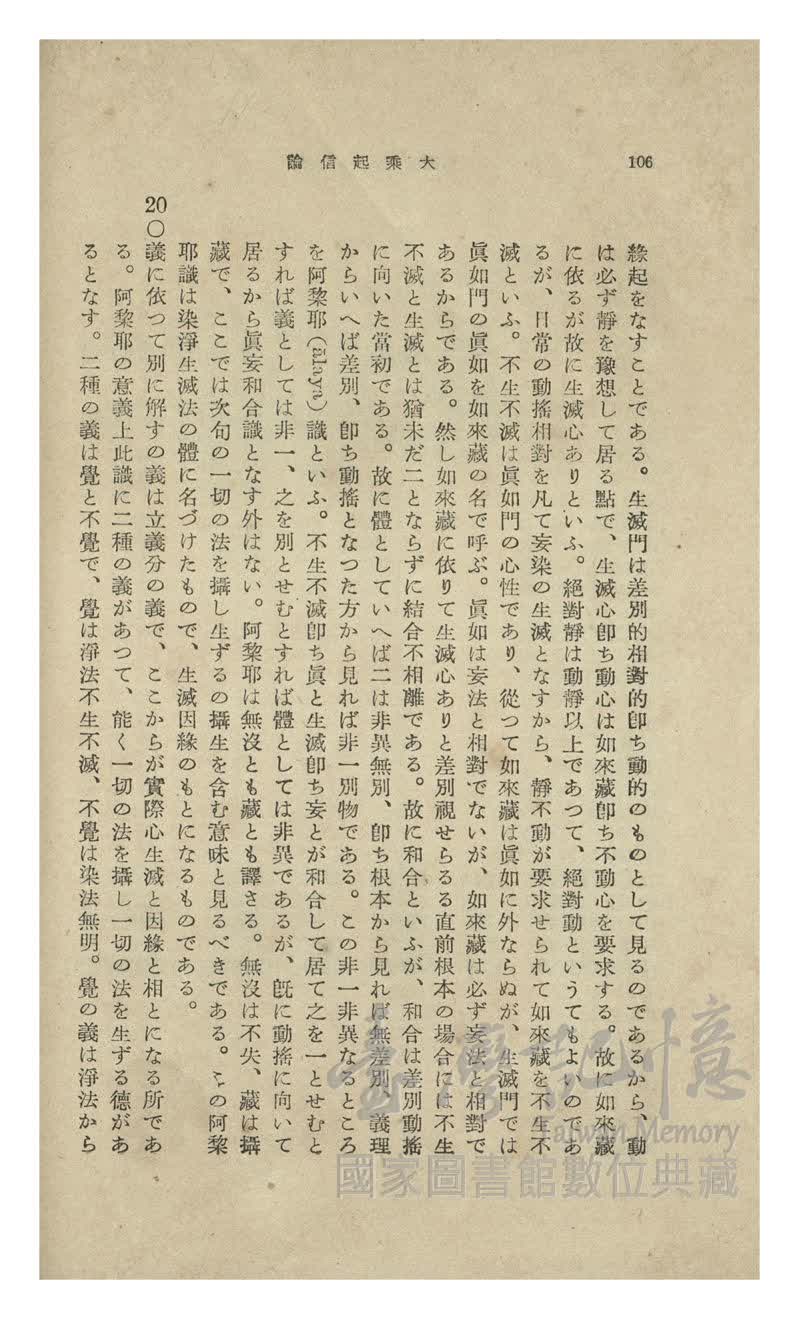 106
大乘起信論
緣起をなすことである。生滅門は差別的相對的卽ち動的のものとして見るのであるから、動
は必ず靜を豫想して居る點で、生滅心卽ち動心は如來藏卽ち不動心を要求する。故に如來藏
に依るが故に生滅心ありといふ。絕對靜は動靜以上であつて、絕對動というてもよいのであ
るが、日常の動搖相對を凡て妄染の生滅となすから、靜不動が要求せられて如來藏を不生不
滅といふ。不生不滅は眞如門の心性であり、從つて如來藏は眞如に外ならぬが、生滅門では
眞如門の眞如を如來藏の名で呼ぶ。眞如は妄法と相對でないが、如來藏は必ず妄法と相對で
あるからである。然し如來藏に依りて生滅心ありと差別視せらるる直前根本の場合には不生
不滅と生滅とは猶未だ二とならずに結合不相離である。故に和合といふが、和合は差別動搖
に向いた當初である。故に體としていへば二は非異無別、卽ち根本から見れば無差別、義理
からいへば差別、卽ち動搖となつた方から見れば非一別物である。この非一非異なるところ
を阿黎耶(ālaya)識といふ。不生不滅卽ち眞と生滅卽ち妄とが和合して居て之を一とせむと
すれば義としては非一、之を別とせむとすれば體としては非異であるが、旣に動搖に向いて
居るから眞妄和合識となす外はない。阿黎耶は無沒とも藏とも譯さる。無沒は不失、藏は攝
藏で、ここでは次句の一切の法を攝し生ずるの攝生を含む意味と見るべきである。この阿黎
耶識は染淨生滅法の體に名づけたもので、生滅因緣のもとになるものである。
20○義に依つて別に解すの義は立義分の義で、ここからが實際心生滅と因緣と相とになる所であ
る。阿黎耶の意義上此識に二種の義があつて、能く一切の法を攝し一切の法を生ずる德があ
るとなす。二種の義は覺と不覺で、覺は淨法不生不滅、不覺は染法無明。覺の義は淨法から
臺灣記憶
Taiwan Memory
國家圖書館數位典藏